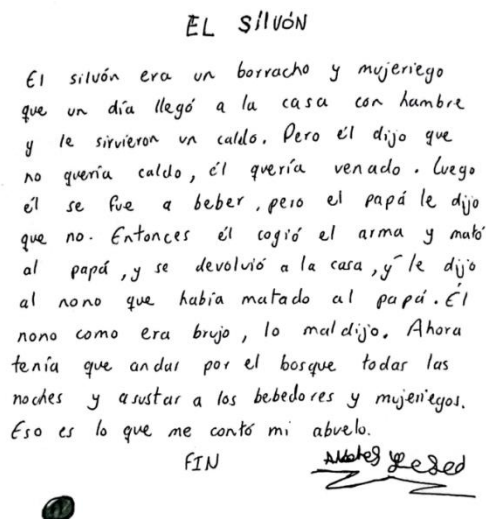 EL SilVÓN
El silvón era un borracho y mujeriego
que un día llegó a la casa con hambre
y le sirvieron un caldo. Pero él dijo que
no quería caldo, él quería venado. Luego
él se fue a beber, pero el papá le dijo
que no. Entonces él cogió el arma y mató
al papá, y se devolvió a la casa, y le dijo
al nono que había matado al papá. Él
nono como era brujo, lo maldijo. Ahora
tenía que andar por el bosque todas las
noches y asustar a los bebedores y mujeriegos.
Eso es lo que me contó mi abuelo.
FIN